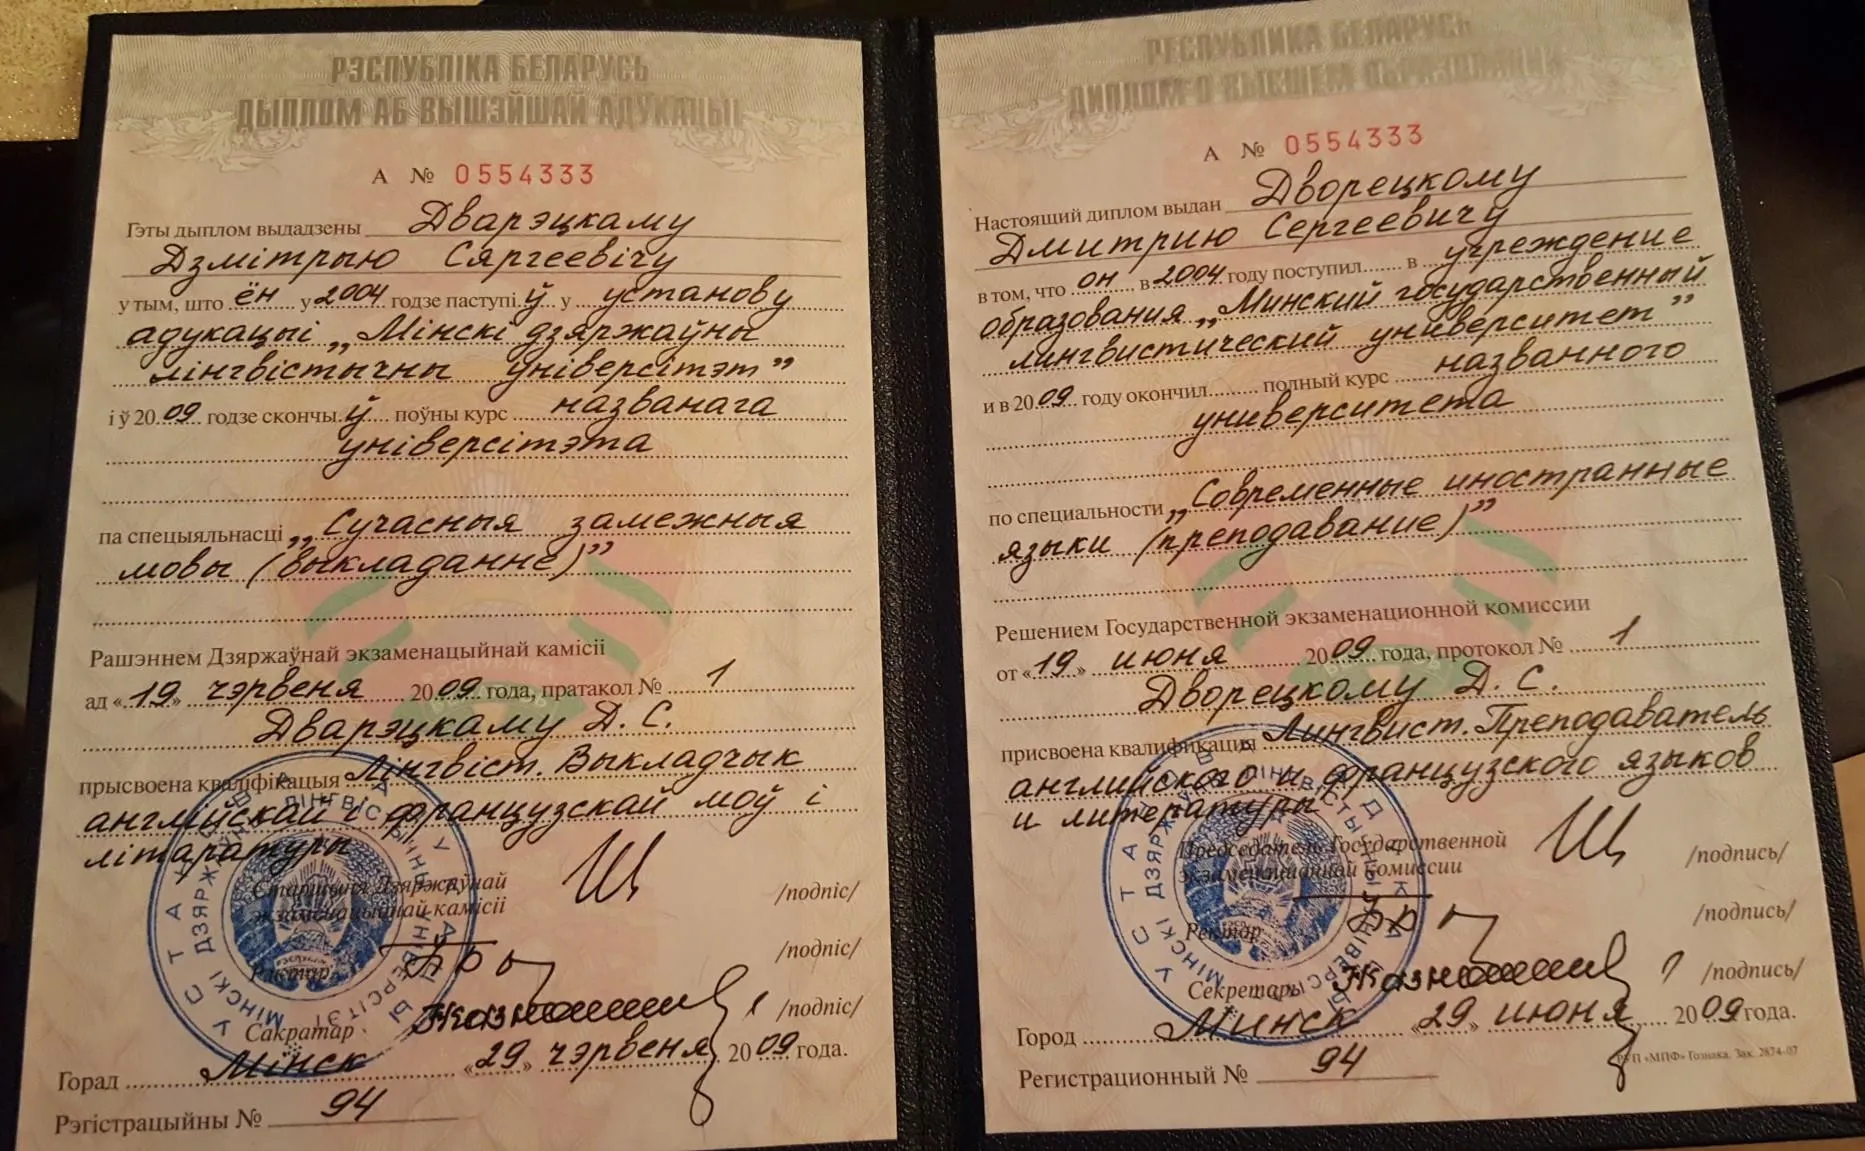 РЭСПУБЛІКА БЕЛАРУСЬ
ДЫПЛОМ АБ ВЫШЭЙШАЙ АДУКАЦЫІ
А № 0554333
Гэты дыплом выдадзены Дварэцкаму
Дзмітрыю Сяргеевічу
у тым, што ён у 2004 годзе паступіў у установу
адукацыі „Мінскі дзяржаўны
лінгвістычны універсітэт”
і ў 2009 годзе скончыў поўны курс названага
універсітэта
па спецыяльнасці „Сучасныя замежныя
мовы (выкладанне)”
Рашэннем Дзяржаўнай экзаменацыйнай камісіі
ад «19» чэрвеня 2009 года, пратакол № 1
Дварэцкаму Д. С.
прысвоена кваліфікацыя Лінгвіст. Выкладчык
англійскай і французскай моў і
літаратуры
Старшыня Дзяржаўнай
экзаменацыйнай камісіі /подпіс/
Рэктар /подпіс/
Сакратар /подпіс/
Горад Мінск «29» чэрвеня 2009 года.
Рэгістрацыйны № 94
РЕСПУБЛИКА БЕЛАРУСЬ
ДИПЛОМ О ВЫСШЕМ ОБРАЗОВАНИИ
А № 0554333
Настоящий диплом выдан Дворецкому
Дмитрию Сергеевичу
в том, что он в 2004 году поступил в учреждение
образования „Минский государственный
лингвистический университет”
и в 2009 году окончил полный курс названного
университета
по специальности „Современные иностранные
языки (преподавание)”
Решением Государственной экзаменационной комиссии
от «19» июня 2009 года, протокол № 1
Дворецкому Д. С.
присвоена квалификация Лингвист. Преподаватель
английского и французского языков
и литературы
Председатель Государственной
экзаменационной комиссии /подпись/
Ректор /подпись/
Секретарь /подпись/
Город Минск «29» июня 2009 года.
Регистрационный № 94
РУП «МПФ» Гознака. Зак. 2874-07